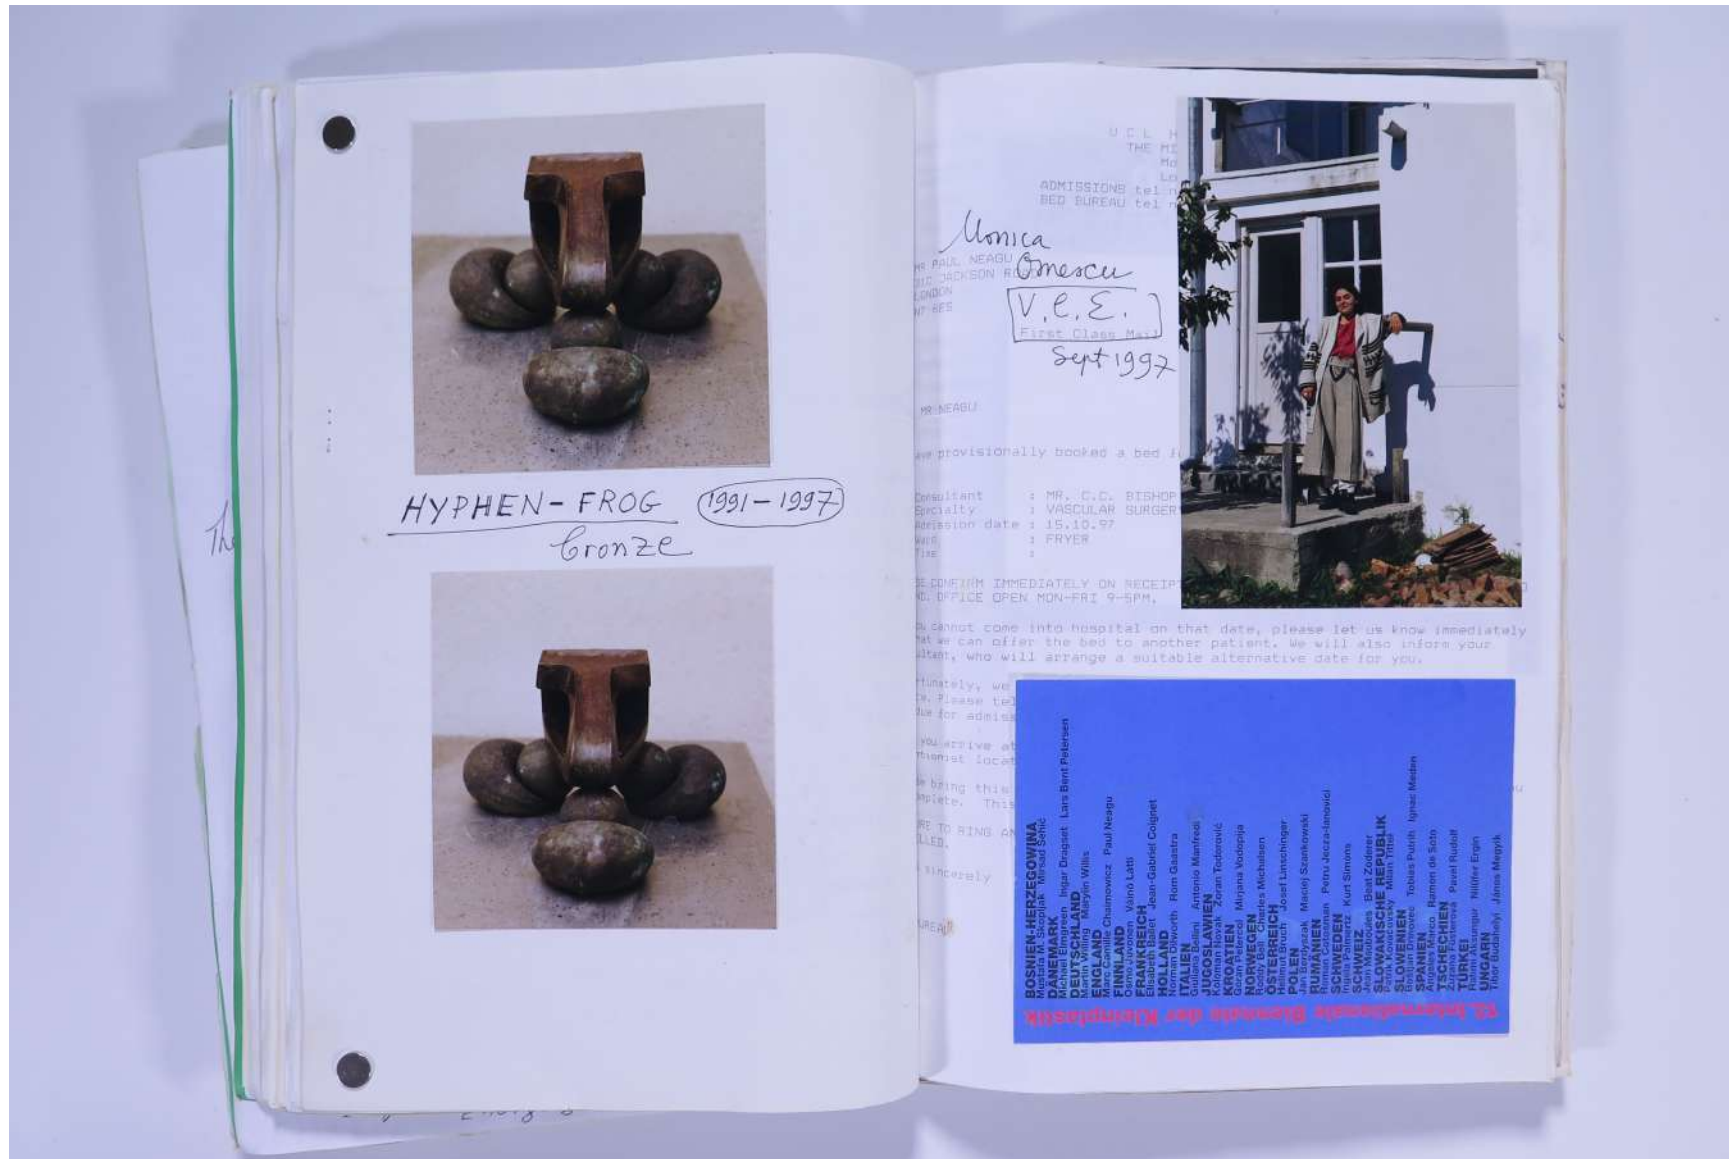 HYPHEN-FROG 1991-1997
bronze
The
U C L H
THE MI
Mo
Lo
ADMISSIONS tel n
BED BUREAU tel n
Monica
MR PAUL NEAGU
JACKSON ROAD
LONDON
V.C.E.
First Class Mail
Sept 1997
MR NEAGU
provisionally booked a bed
Consultant : MR. C.C. BISHOP
Specialty : VASCULAR SURGERY
Admission date : 15.10.97
Ward : FRYER
Time :
CONFIRM IMMEDIATELY ON RECEIPT
OFFICE OPEN MON-FRI 9-5PM.
cannot come into hospital on that date, please let us know immediately
we can offer the bed to another patient. We will also inform your
who will arrange a suitable alternative date for you.
we
Please tel
due for admiss
you arrive at
locat
bring this
This
TO RING AN
sincerely
BOSNIEN-HERZEGOWINA
Mustafa M. Skopljak Mirsad Sehić
DÄNEMARK
Michael Elmgreen Ingar Dragset Lars Bent Petersen
DEUTSCHLAND
Martin Willing Marylin Willis
ENGLAND
Marc Camille Chaimowicz Paul Neagu
FINNLAND
Osmo Juvonen Väinö Lätti
FRANKREICH
Elisabeth Ballet Jean-Gabriel Coignet
HOLLAND
Norman Dilworth Rom Gaastra
ITALIEN
Giuliana Bellini Antonio Manfredi
JUGOSLAWIEN
Koloman Novak Zoran Todorović
KROATIEN
Goran Petercol Mirjana Vodopija
NORWEGEN
Roddy Bell Charles Michalsen
ÖSTERREICH
Helmut Bruch Josef Linschinger
POLEN
Jan Berdyszak Maciej Szankowski
RUMÄNIEN
Roman Cotosman Petru Jecza-Ianovici
SCHWEDEN
Ingalis Palmertz Kurt Simons
SCHWEIZ
Jean Mauboulès Beat Zoderer
SLOWAKISCHE REPUBLIK
Patrik Kovačovsky Milan Tittel
SLOWENIEN
Boštjan Drinovec Tobias Putrih Ignac Meden
SPANIEN
Angeles Marco Ramon de Soto
TSCHECHIEN
Zuzana Fusterová Pavel Rudolf
TÜRKEI
Rahmi Aksungur Nilüfer Ergin
UNGARN
Tibor Budahelyi János Megyik
13. Internationale Biennale der Kleinplastik